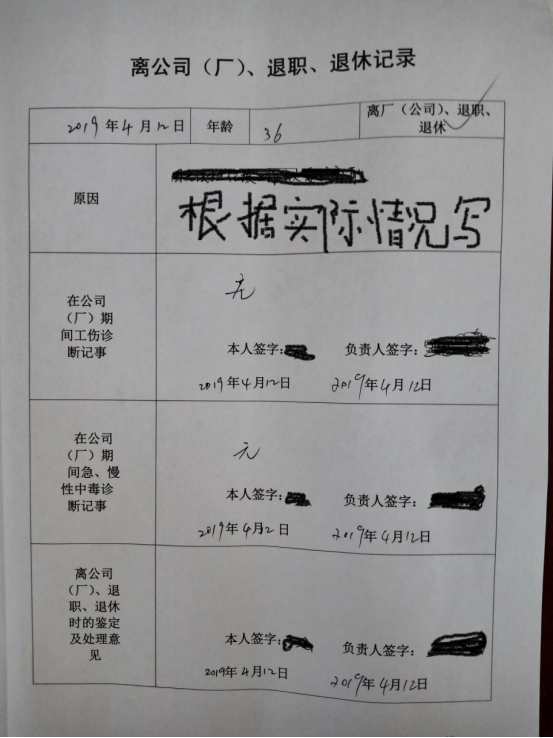 离公司（厂）、退职、退休记录
2019年4月12日 年龄 36 离厂（公司）、退职、
退休
原因
根据实际情况写
在公司
（厂）期
间工伤诊
断记事
无
本人签字： 负责人签字：
2019年4月12日 2019年4月12日
在公司
（厂）期
间急、慢
性中毒诊
断记事
无
本人签字： 负责人签字：
2019年4月2日 2019年4月12日
离公司
（厂）、退
职、退休
时的鉴定
及处理意
见
本人签字： 负责人签字：
2019年4月12日 2019年4月12日